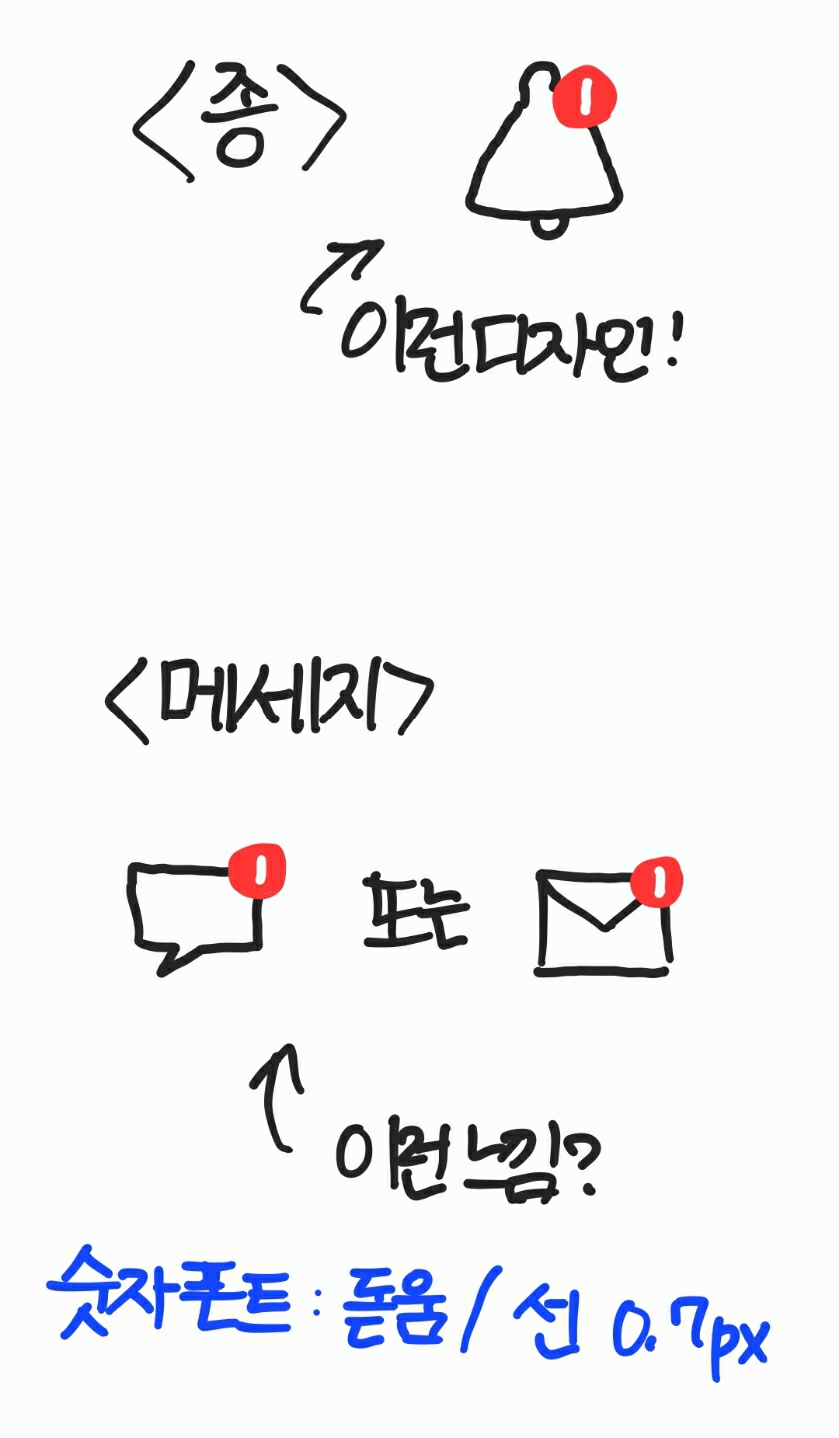 <종>
1
이런디자인!
<메세지>
1 또는 1
이런 느낌?
숫자폰트 : 돋움 / 선 0.7px